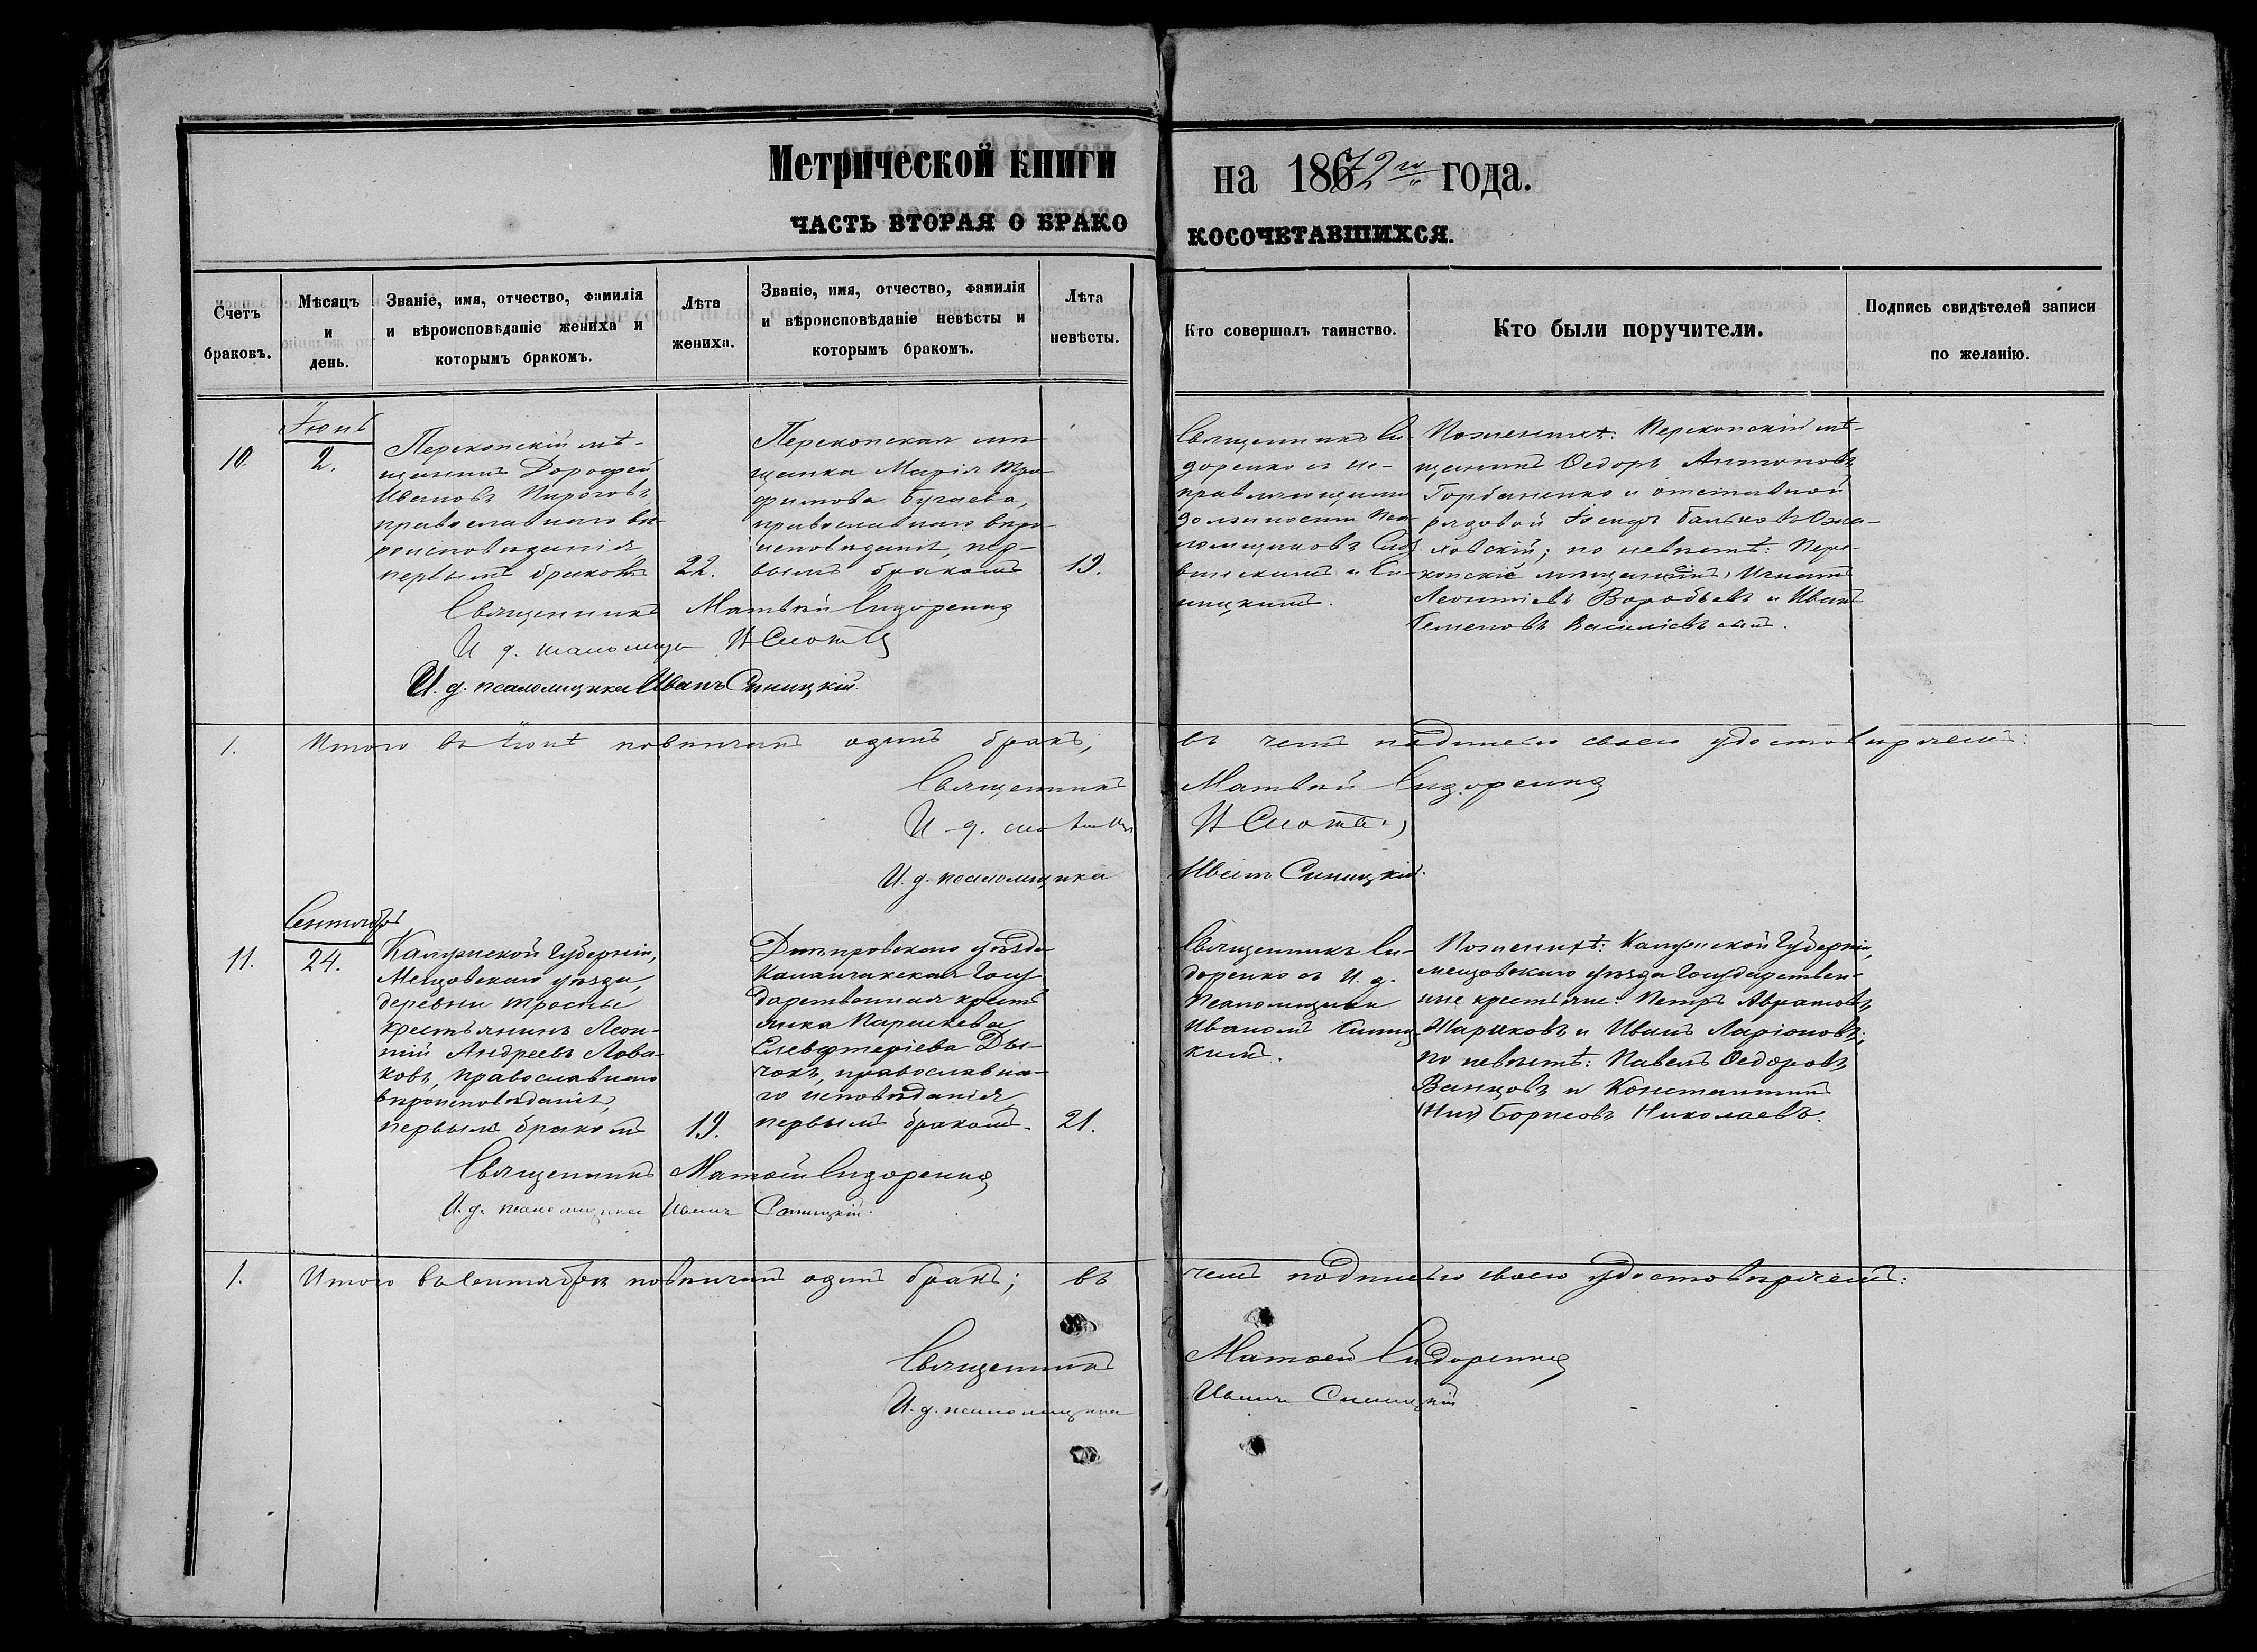 Метрической книги на 1872го года.
ЧАСТЬ ВТОРАЯ О БРАКОКОСОЧЕТАВШИХСЯ.
Счетъ
браковъ.
Мѣсяцъ
и
день.
Званіе, имя, отчество, фамилія
и вѣроисповѣданіе жениха и
которымъ бракомъ.
Лѣта
жениха.
Званіе, имя, отчество, фамилія
и вѣроисповѣданіе невѣсты и
которымъ бракомъ.
Лѣта
невѣсты.
Кто совершалъ таинство.
Кто были поручители.
Подпись свидѣтелей записи
по желанію.
10.
Іюнь
2.
Перекопскій мѣ-
щанинъ Дорофей
Ивановъ Пироговъ
православнаго вѣ-
роисповѣданія,
первымъ бракомъ
22.
Перекопская мѣ-
щанка Марія Тро-
фимова Бугаева,
православнаго вѣро-
исповѣданія, пер-
вымъ бракомъ
19.
Священникъ Си-
доренко съ ис-
правляющими
должности пса-
ломщиковъ
и Си-
ницкимъ.
По женихѣ: Перекопскій мѣ-
щанинъ Ѳедоръ Антоновъ
Горбаненко и отставной
рядовой Іосифъ
по невѣстѣ: Пере-
копскіе мѣщанинъ, Игнатъ
Леонтіевъ Воробьевъ и Иванъ
Семеновъ Василіевъ
Священникъ Матвѣй Сидоренко
И. д. псаломщ.
И. д. псаломщика Иванъ Синицкій.
1. Итого въ Іюнѣ повѣнчанъ одинъ бракъ; въ чемъ подписью своею удостовѣряемъ:
Священникъ Матвѣй Сидоренко
И. д.
И. д. псаломщика Иванъ Синицкій.
11.
Сентябрь
24.
Калужской Губерніи,
Мещовскаго уѣзда,
деревни Тросны
крестьянинъ Леон-
тій Андреевъ Лова-
ковъ, православнаго
вѣроисповѣданія,
первымъ бракомъ
19.
Днѣпровскаго уѣзда
Каланчакская Госу
дарственная кресть
янка Параскева
Елевферіева Ды-
чокъ, православна-
го исповѣданія,
первымъ бракомъ.
21.
Священникъ Си-
доренко съ И. д.
Псаломщика
Иваномъ Синиц
кимъ.
По женихѣ: Калужской Губерніи,
мещовскаго уѣзда Государствен-
ные крестьяне: Петръ Аврамовъ
Шариковъ и Иванъ Ларіоновъ;
по невѣстѣ: Павелъ Ѳедоровъ
Ванцовъ и Константинъ
Борисовъ Николаевъ.
Священникъ Матѳей Сидоренко
И. д. псаломщика Иванъ Синицкій.
1. Итого въ Сентябрѣ повѣнчанъ одинъ бракъ; въ чемъ подписью своею удостовѣряемъ:
Священникъ Матѳей Сидоренко
И. д. псаломщика Иванъ Синицкій